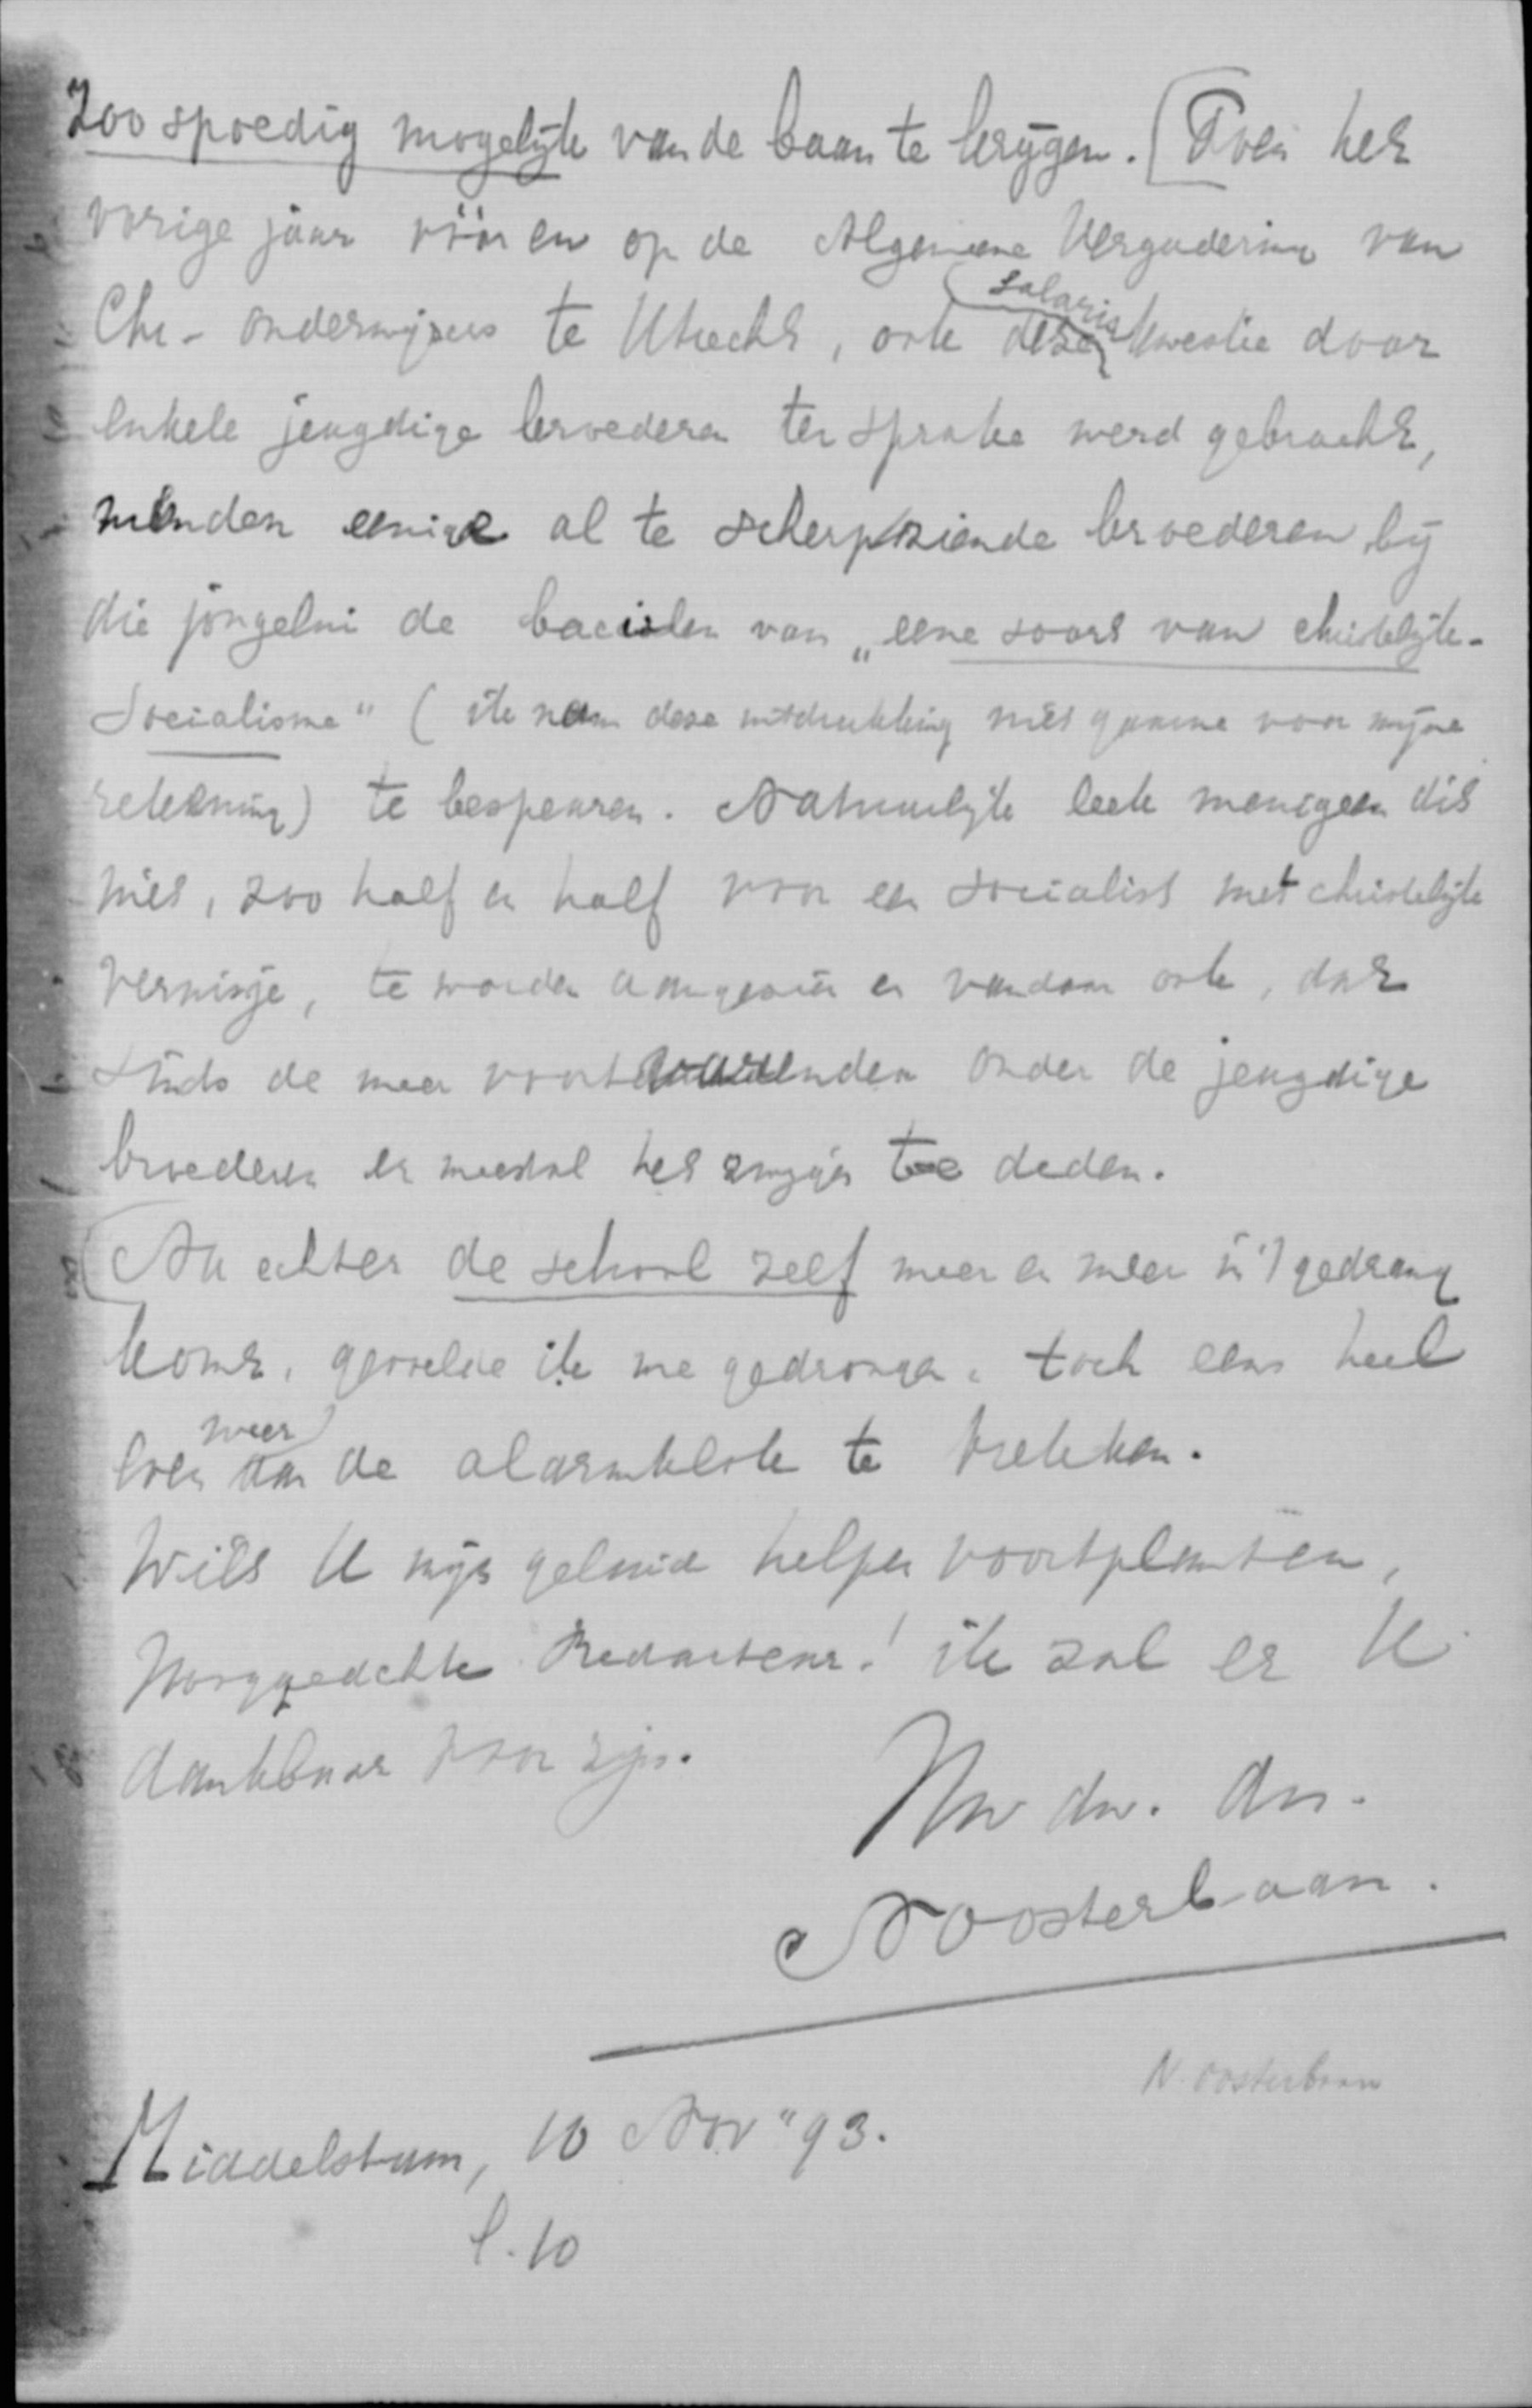 Zoo spoedig mogelijk van de baan te krijgen. [Toen het
vorige jaar vóór en op de Algemeene Vergadering van
Chr- onderwijzers te Utrecht, ook deze salaris kwestie door
enkele jeugdige broederen ter sprake werd gebracht,
meenden eenige al te scherpziende broederen, bij
die jongelui de bacielen van „eene soort van christelijk-
Socialisme" (ik neem deze uitdrukking niet gaarne voor mijne
rekening) te bespeuren. Natuurlijk leek menigeen dit
niet, zoo half en half voor een socialist met christelijk
vernisje, te worden aangezien en vandaar ook, dat
sinds de meer voort enden onder de jeugdige
broederen er meestal het zwijgen toe deden.
[Nu echter de school zelf meer en meer in 't gedrang
komt, gevoelde ik me gedrongen, toch eens heel
even weer aan de alarmklok te trekken.
Wilt U mijn geluid helpen voortplanten,
Hooggeachte Redacteur! ik zal er U
dankbaar voor zijn.
Uw dw. dn.
N Oosterbaan.
N. Oosterbaan
Middelstum, 10 Nov "93.
l. 10